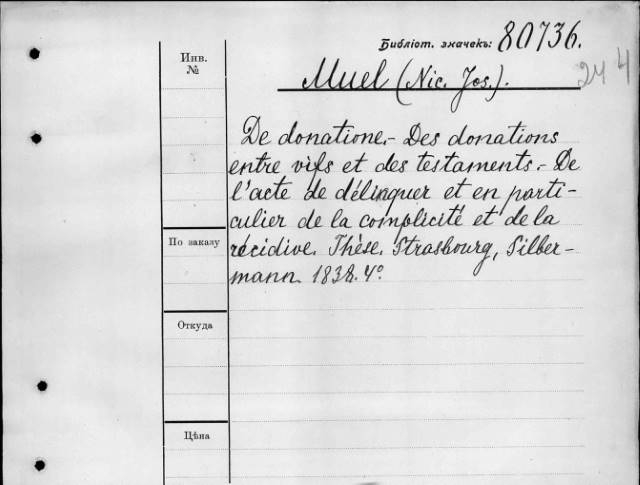 Библіот. значекъ: 80736.
244
Инв. №
Muel (Nic. Jos.).
De donatione.- Des donations
entre vifs et des testaments.- De
l'acte de délinquer et en parti-
culier de la complicité et de la
récidive. Thèse. Strasbourg, Silber-
mann. 1838. 4°.
По заказу
Откуда
Цѣна